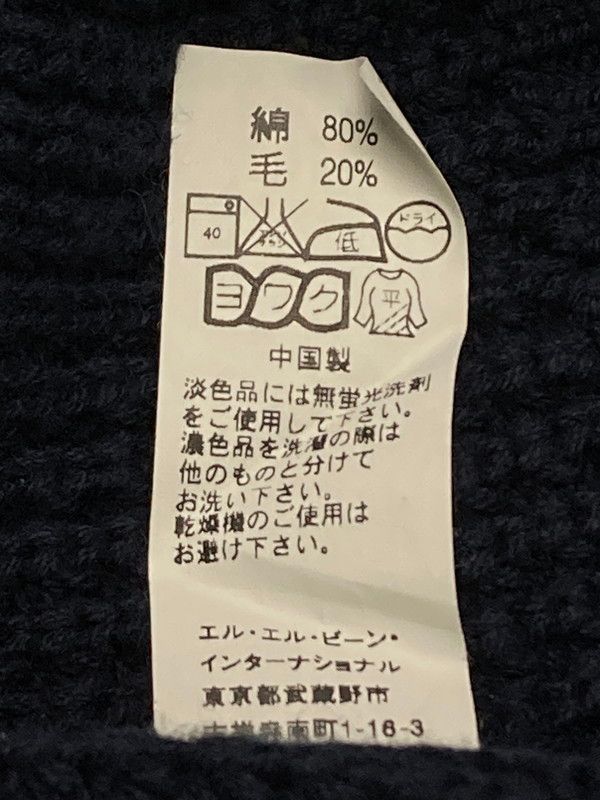 綿 80%
毛 20%
40 低 ドライ
ヨワク 平
中国製
淡色品には無蛍光洗剤
をご使用して下さい。
濃色品を洗濯の際は
他のものと分けて
お洗い下さい。
乾燥機のご使用は
お避け下さい。
エル・エル・ビーン・
インターナショナル
東京都武蔵野市
吉祥寺南町1-18-3